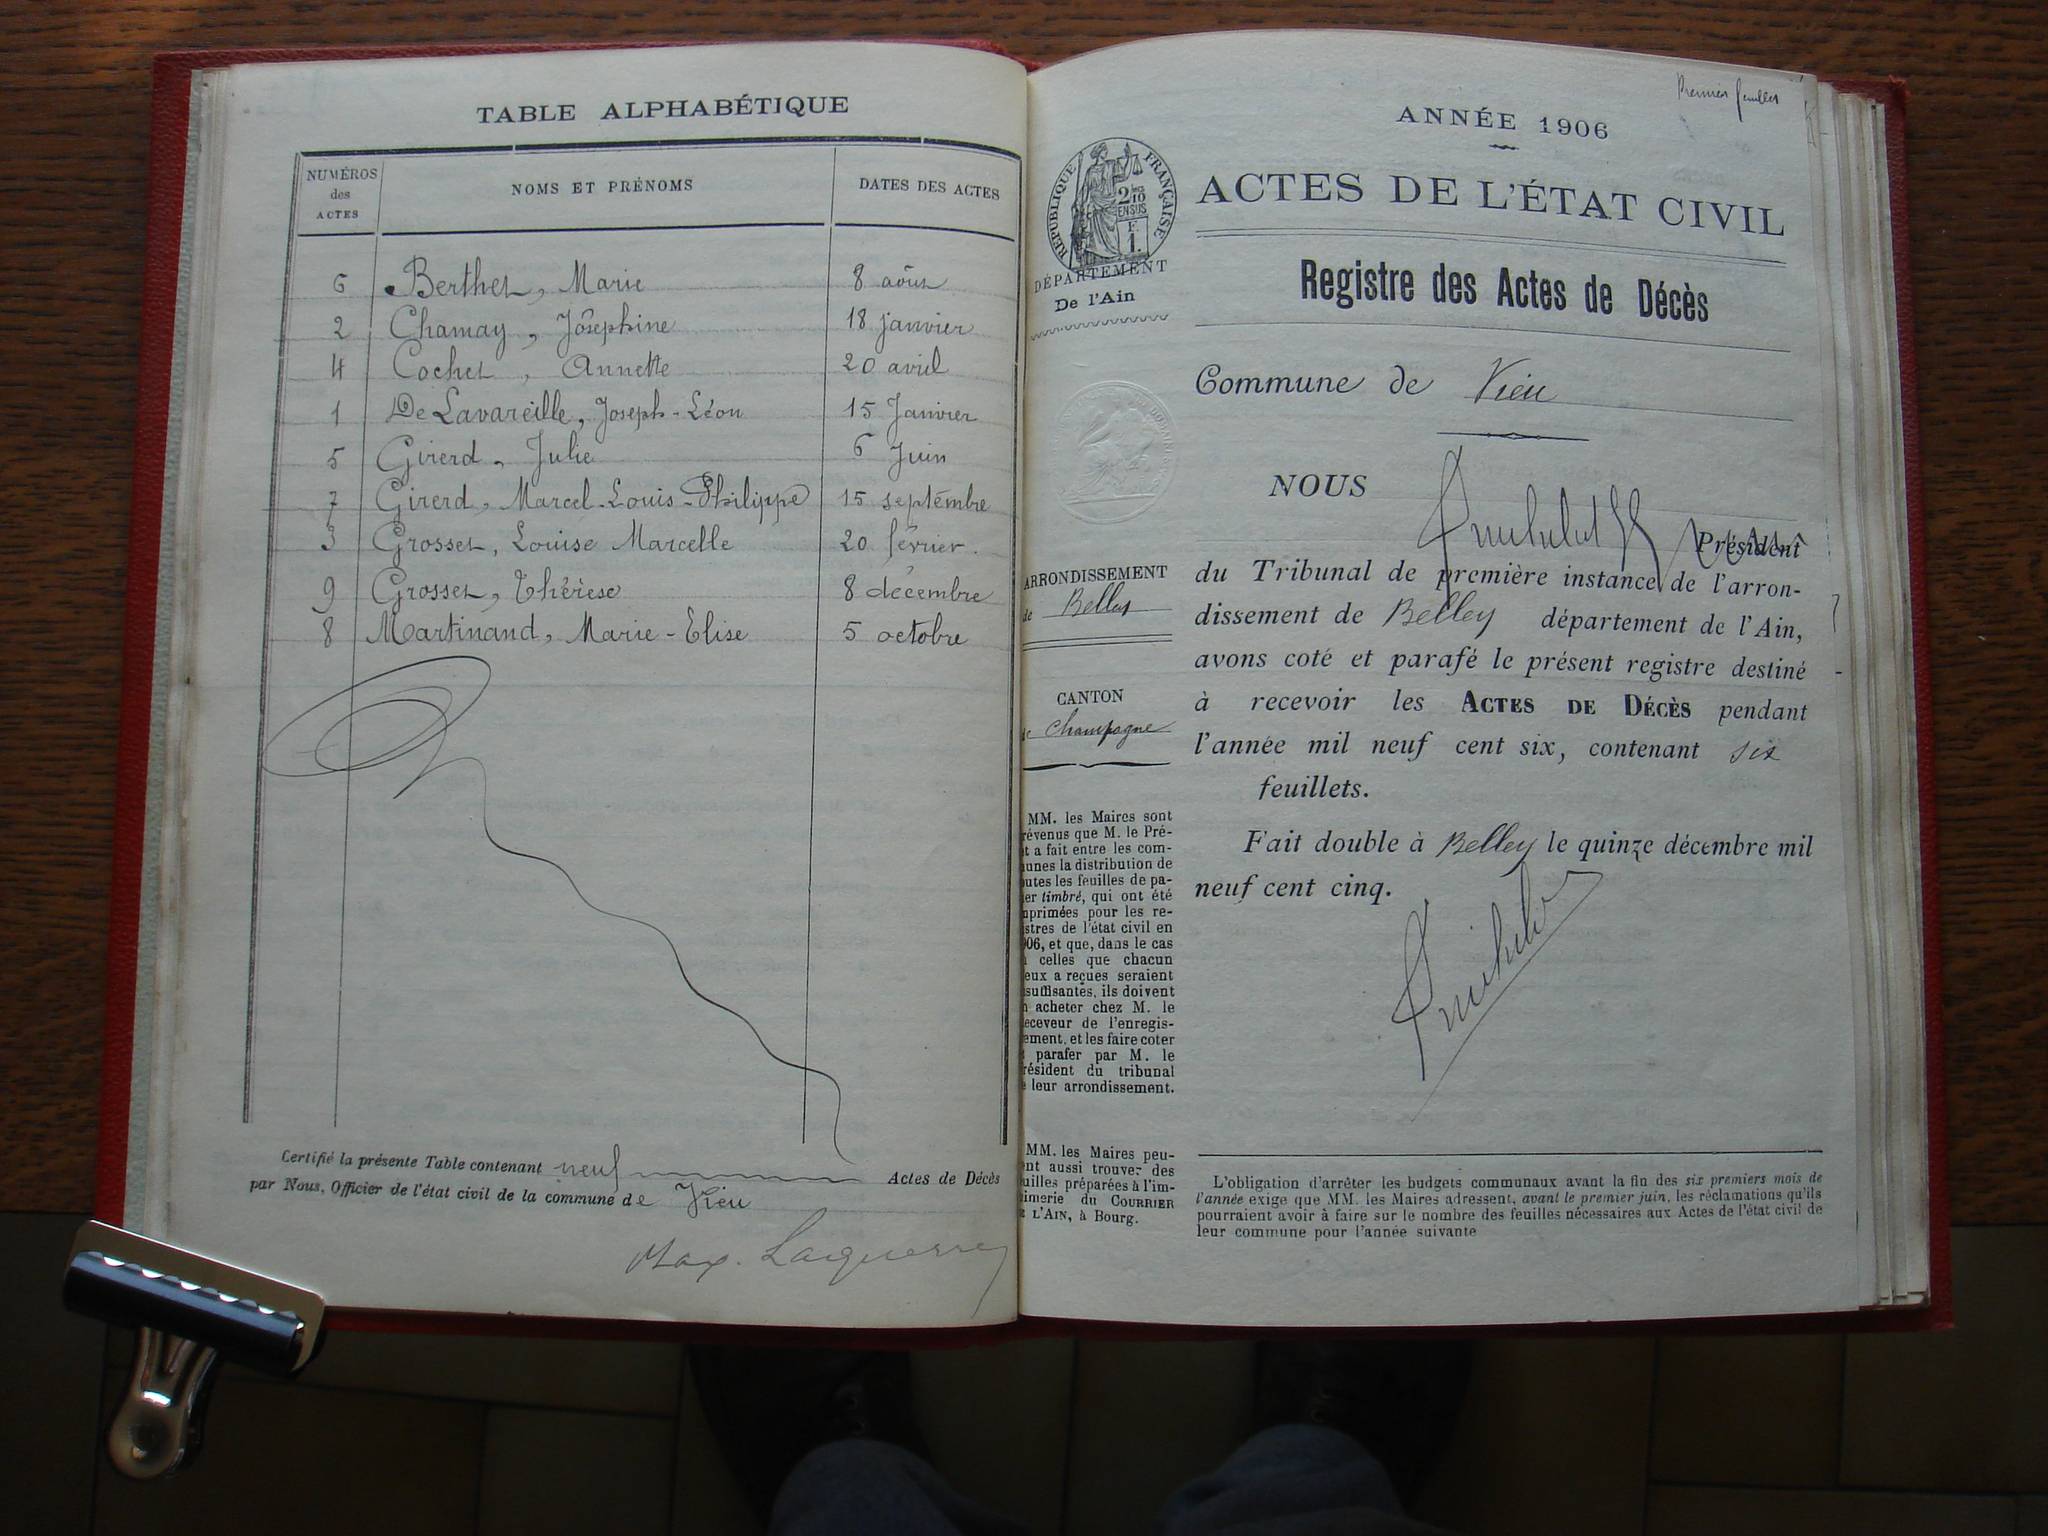 TABLE ALPHABÉTIQUE
NUMÉROS des ACTES
NOMS ET PRÉNOMS
DATES DES ACTES
6 Berthet, Marie 8 août
2 Chamay, Joséphine 18 janvier
4 Cochet, Annette 20 avril
1 De Lavareille, Joseph-Léon 15 Janvier
5 Girerd, Julie 6 Juin
7 Girerd, Marcel-Louis-Philippe 15 septembre
3 Grosset, Louise Marcelle 20 février.
9 Grosset, Thérèse 8 décembre
8 Martinand, Marie-Elise 5 octobre
Certifié la présente Table contenant neuf Actes de Décès
par Nous, Officier de l'état civil de la commune de Vieu
Max. Laguerre
Premier feuillet
ANNÉE 1906
ACTES DE L'ÉTAT CIVIL
Registre des Actes de Décès
Commune de Vieu
NOUS
Président
du Tribunal de première instance de l'arron-
dissement de Belley département de l'Ain,
avons coté et parafé le présent registre destiné
à recevoir les ACTES DE DÉCÈS pendant
l'année mil neuf cent six, contenant six
feuillets.
Fait double à Belley le quinze décembre mil
neuf cent cinq.
L'obligation d'arrêter les budgets communaux avant la fin des six premiers mois de
l'année exige que MM. les Maires adressent, avant le premier juin, les réclamations qu'ils
pourraient avoir à faire sur le nombre des feuilles nécessaires aux Actes de l'état civil de
leur commune pour l'année suivante
RÉPUBLIQUE FRANÇAISE
2/10
EN SUS
F.
1.
DÉPARTEMENT
De l'Ain
ARRONDISSEMENT
de Belley
CANTON
de Champagne
MM. les Maires sont
révenus que M. le Pré-
t a fait entre les com-
unes la distribution de
outes les feuilles de pa-
er timbré, qui ont été
mprimées pour les re-
istres de l'état civil en
906, et que, dans le cas
celles que chacun
eux a reçues seraient
suffisantes, ils doivent
n acheter chez M. le
eceveur de l'enregis-
ement, et les faire coter
t parafer par M. le
résident du tribunal
e leur arrondissement.
MM. les Maires peu-
ent aussi trouver des
uilles préparées à l'im-
imerie du COURRIER
E L'AIN, à Bourg.